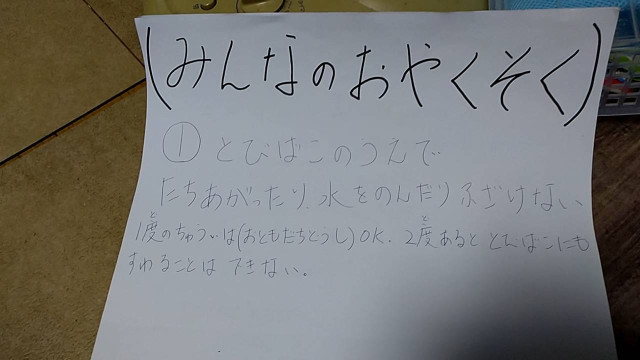 (みんなのおやくそく)
① とびばこのうえで
たちあがったり、水をのんだりふざけない
1度のちゅういは(おともだちどうし)OK. 2度あるととびばこにも
すわることはできない。